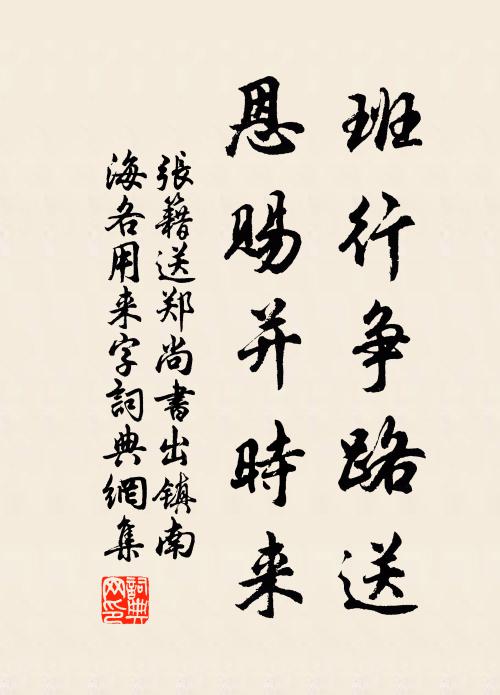 班行争路送
恩賜并時来
張籍送郑尚書出镇南
海各用来字詞典網集
詞典网印